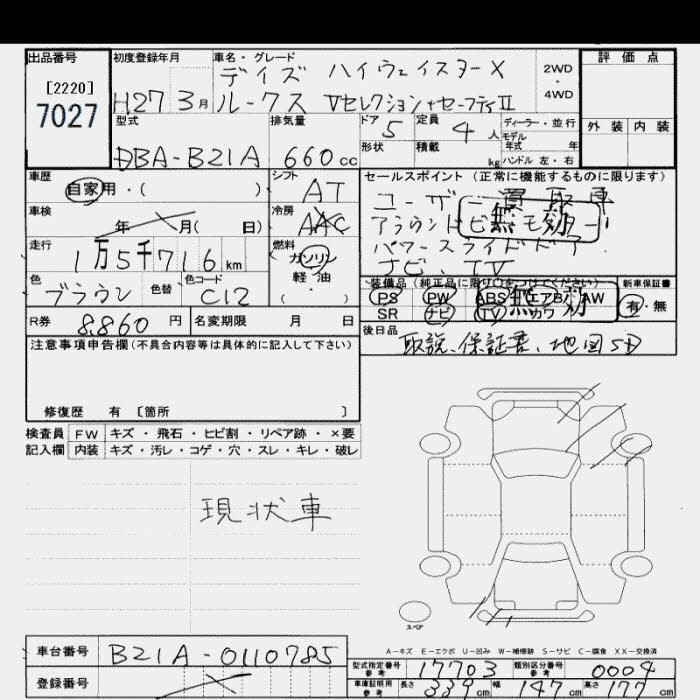 出品番号
[2220]
7027
初度登録年月
H27 3月
車名・グレード
デイズ ハイウェイスターX
ルークス Vセレクション+セーフティⅡ
2WD
・
4WD
評価点
外装 内装
型式
DBA-B21A
排気量
660cc
ドア 5
定員 4人
形状
積載 kg
ディーラー・並行
モデル
年式 年
ハンドル 左・右
車歴
自家用・( )
シフト
AT
車検
年 月( 日)
冷房
AAC
走行
1万5千716km
燃料
ガソリン
軽油
( )
色
ブラウン
色替
色コード
C12
R券 8,860円
名変期限 月 日
セールスポイント(正常に機能するものに限ります)
ユーザー買取車
アラウンドビューモニター
無効
パワースライドドア
ナビ、TV
装備品(純正品に限り○をつけてください)
PS PW ABS エアB AW
SR ナビ TV カワ
無効
新車保証書
有・無
後日品
取説、保証書、地図SD
注意事項申告欄(不具合内容等は具体的に記入して下さい)
修復歴 有 [箇所 ]
検査員 FW キズ・飛石・ヒビ割・リペア跡・×要
記入欄 内装 キズ・汚レ・コゲ・穴・スレ・キレ・破レ
現状車
スペア
A-キズ E-エクボ U-凹み W-補修跡 S-サビ C-腐食 XX-交換済
車台番号 B21A-0110785
登録番号
型式指定番号
参考
17703
類別区分番号
参考
0004
車庫証明用
参考
長さ 339cm 幅 147cm 高さ 177cm